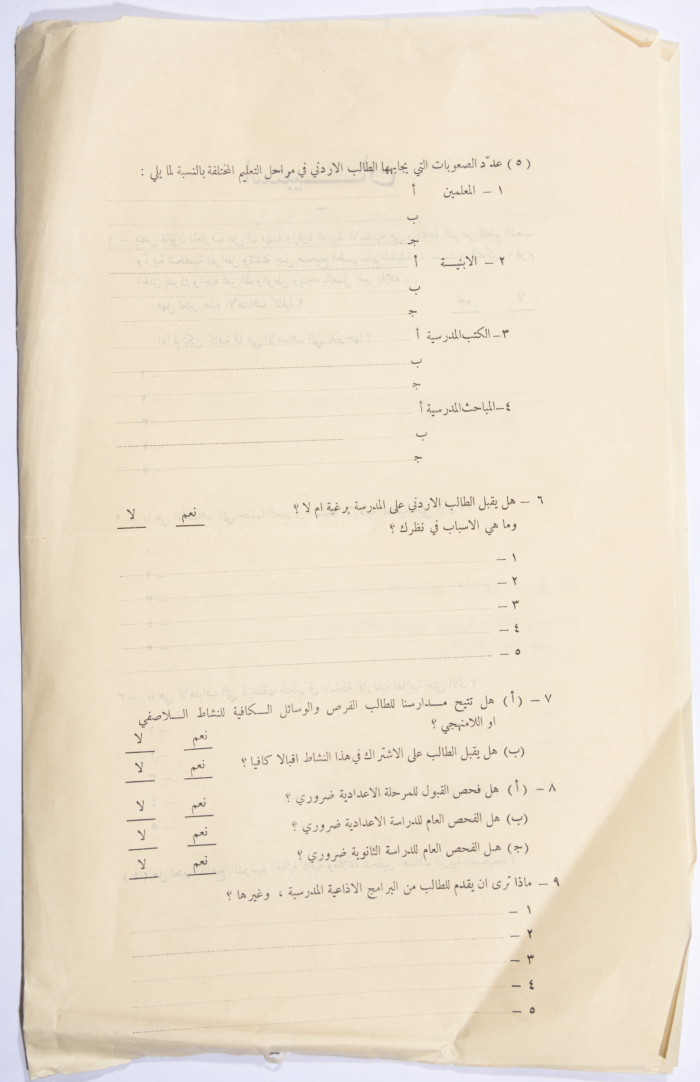 (٥) عدّد الصعوبات التي يجابهها الطالب الاردني في مراحل التعليم المختلفة بالنسبة لما يلي :
١ – المعلمين أ
ب
ج
٢ – الابنيـــة أ
ب
ج
٣ – الكتب المدرسية أ
ب
ج
٤ – المباحث المدرسية أ
ب
ج
٦ – هل يقبل الطالب الاردني على المدرسة برغبة ام لا ؟ نعم لا
وما هي الاسباب في نظرك ؟
١ –
٢ –
٣ –
٤ –
٥ –
٧ – (أ) هل تتيح مــدارسنا للطالب الفرص والوسائل الــكافية للنشاط الــلاصفي
او اللامنهجي ؟ نعم لا
(ب) هل يقبل الطالب على الاشتراك في هذا النشاط اقبالا كافيا ؟ نعم لا
٨ – (أ) هل فحص القبول للمرحلة الاعدادية ضروري ؟ نعم لا
(ب) هل الفحص العام للدراسة الاعدادية ضروري ؟ نعم لا
(ج) هــل الفحص العام للدراسة الثانوية ضروري ؟ نعم لا
٩ – ماذا ترى ان يقدم للطالب من البرامج الاذاعية المدرسية ، وغيرها ؟
١ –
٢ –
٣ –
٤ –
٥ –